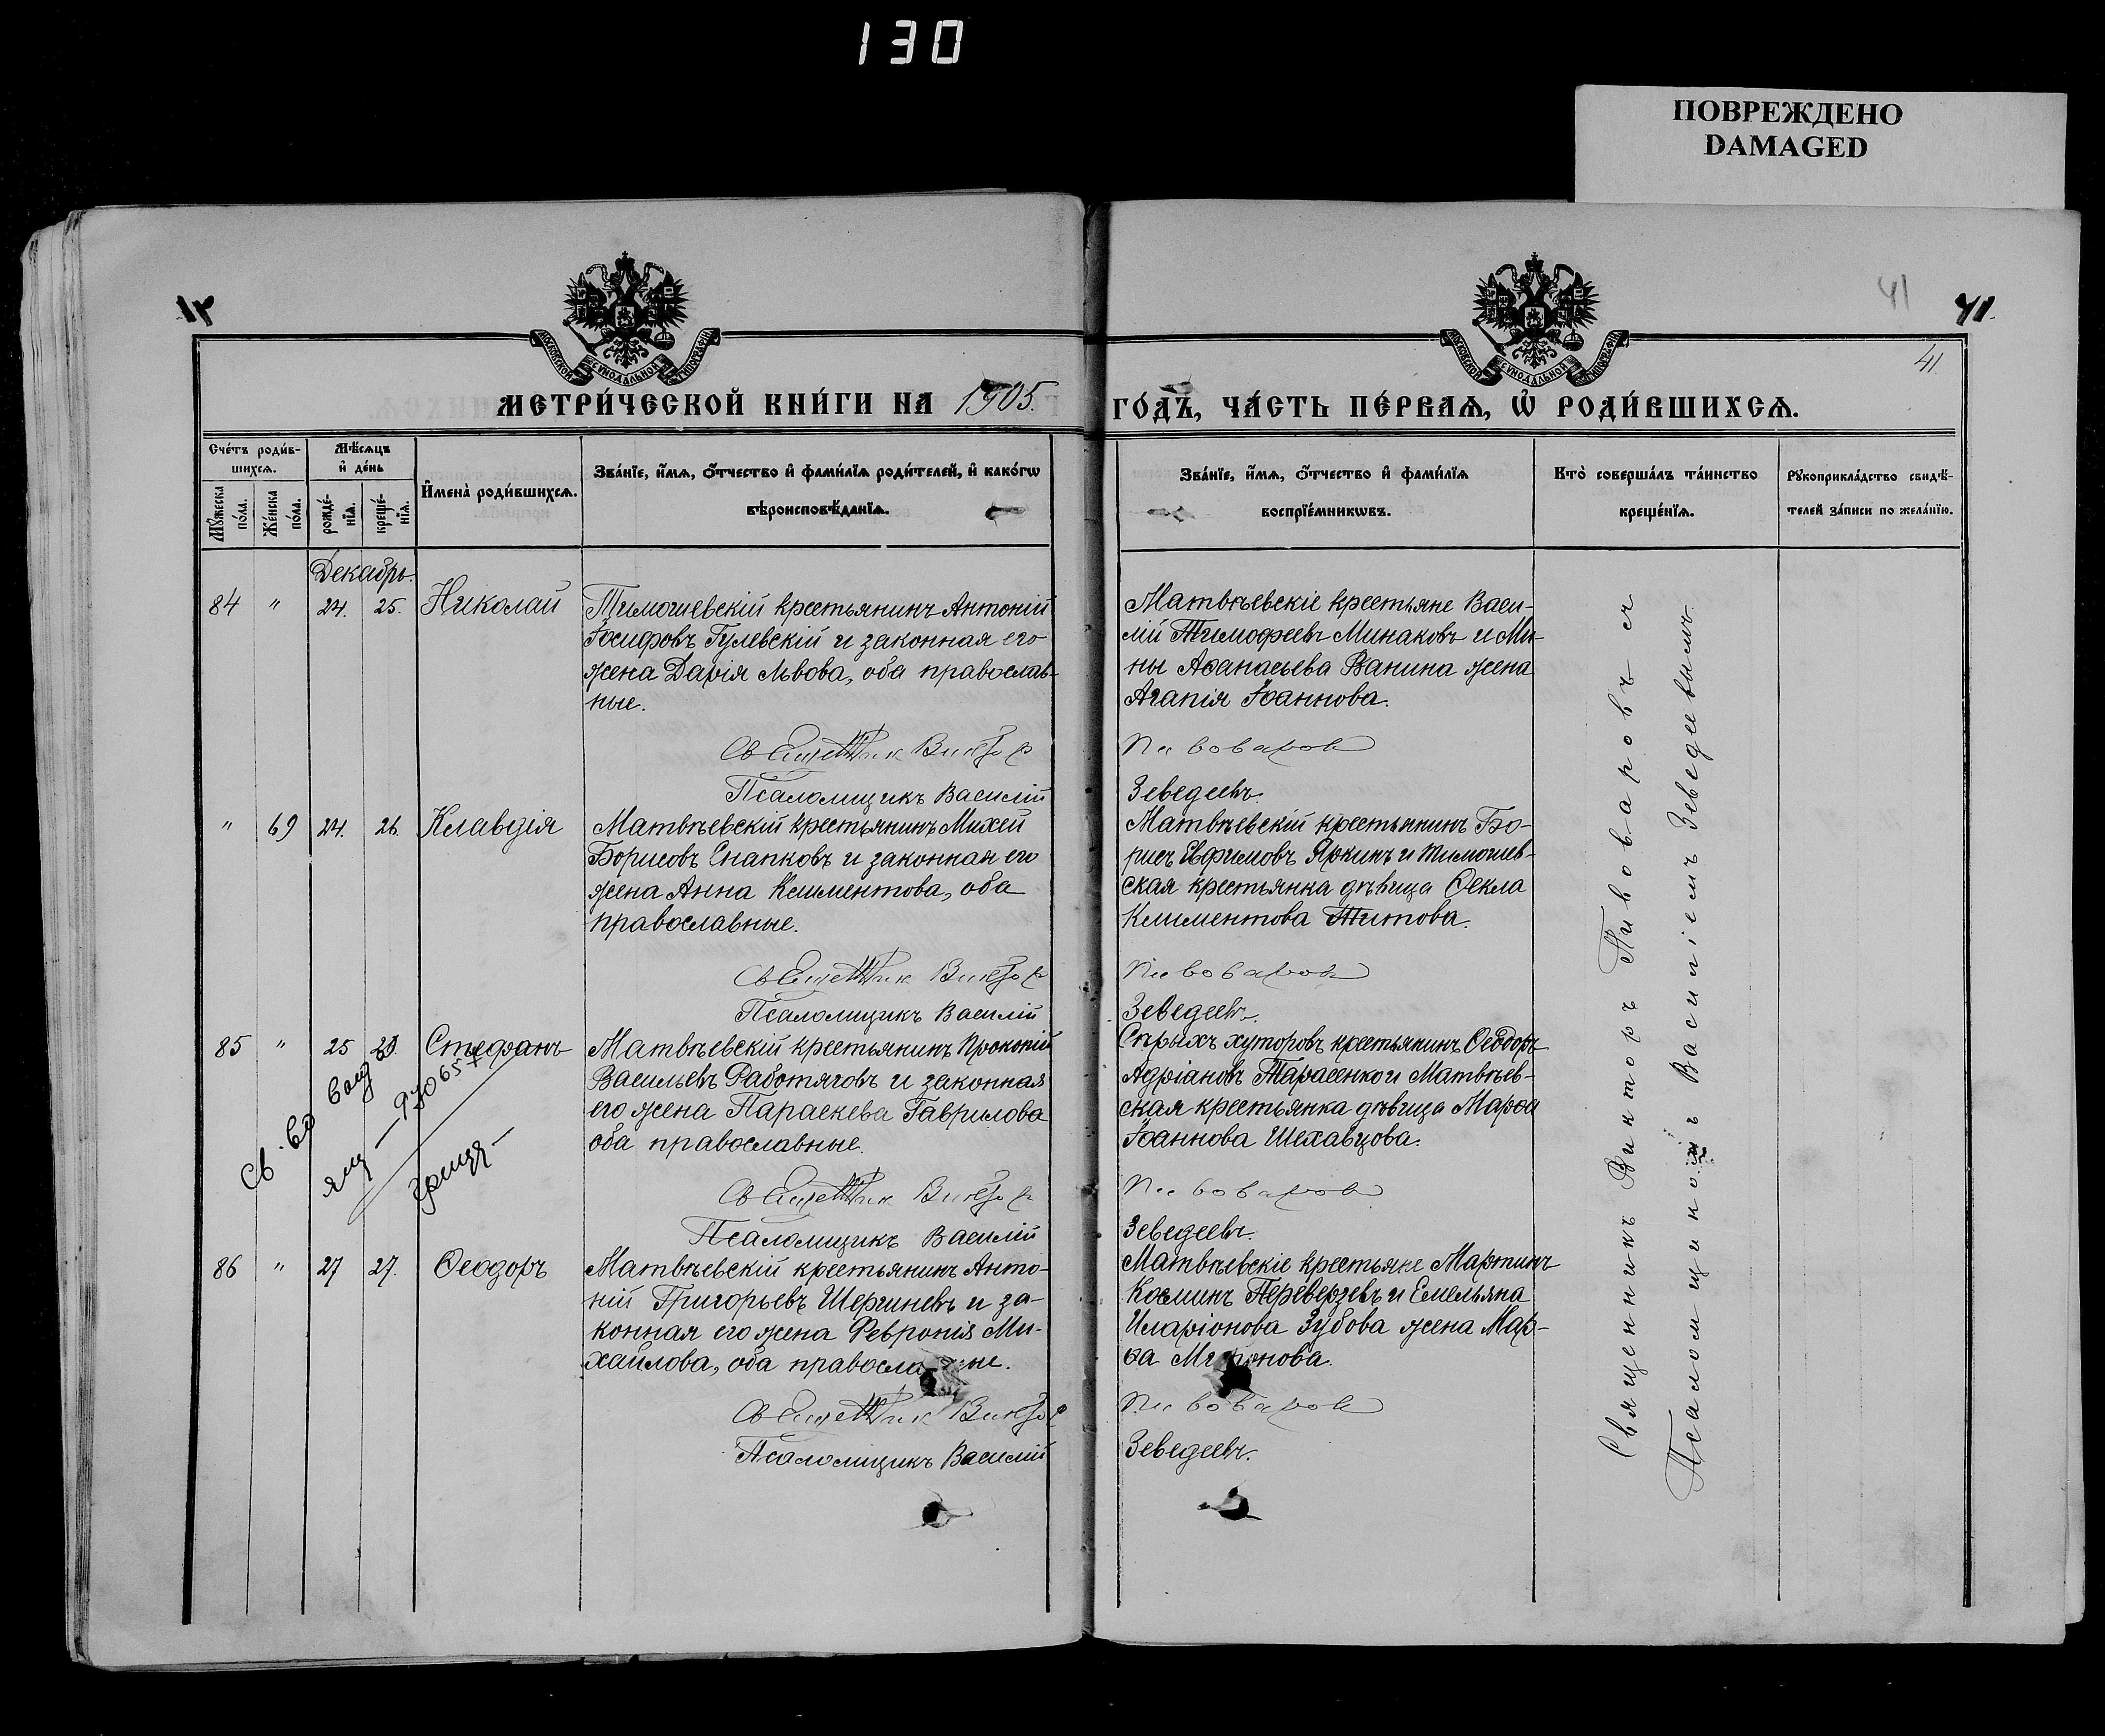 130
ПОВРЕЖДЕНО
DAMAGED
41
41.
41
МОСКОВСКОЙ СѴНОДАЛЬНОЙ ТИПОГРАФІИ
МОСКОВСКОЙ СѴНОДАЛЬНОЙ ТИПОГРАФІИ
МЕТРИ́ЧЕСКОЙ КНИ́ГИ НА 1905.
ГО́ДЪ, ЧА́СТЬ ПЕ́РВАѦ, Ѡ҆ РОДИ́ВШИХСѦ.
Сче́тъ роди́в-
шихсѧ.
Мѣ́сѧцъ
и҆ де́нь
Мꙋ́жеска
по́ла.
Же́нска
по́ла.
рожде́-
нїѧ.
креще́-
нїѧ.
И҆мена̀ роди́вшихсѧ.
Зва́нїе, и҆́мѧ, ѻ҆́тчество и҆ фами́лїѧ роди́телей, и҆ како́гѡ
вѣроисповѣ́данїѧ.
Зва́нїе, и҆́мѧ, ѻ҆́тчество и҆ фами́лїѧ
воспрїе́мникѡвъ.
Кто̀ соверша́лъ та́инство
креще́нїѧ.
Рꙋкоприкла́дство свидѣ́-
телей за́писи по жела́нїю.
Декабрь.
84 " 24. 25. Николай
Тимошевскій крестьянинъ Антоній
Іосифовъ Гулевскій и законная его
жена Дарія Львова, оба православ-
ные.
Священник Виктор
Псаломщикъ Василій
Матвѣевскіе крестьяне Васи-
лій Тимофеевъ Минаковъ и Ми-
ны Аѳанасьева Ванина жена
Агапія Іоаннова.
Пивоваров
Зеведеевъ.
" 69 24. 26. Клавдія
Матвѣевскій крестьянинъ Михей
Борисовъ Снапковъ и законная его
жена Анна Климентова, оба
православные.
Священник Виктор
Псаломщикъ Василій
Матвѣевскій крестьянинъ Бо-
рисъ Евфимовъ Яркинъ и Тимошев-
ская крестьянка дѣвица Ѳекла
Климентова Титова.
Пивоваров
Зеведеевъ.
85 " 25 Стефанъ
Матвѣевскій крестьянинъ Прокопій
Васильевъ Работяговъ и законная
его жена Параскева Гаврилова
оба православные.
Священник Виктор
Псаломщикъ Василій
Сѣрыхъ хуторовъ крестьянинъ Ѳеодоръ
Адріановъ Тарасенко и Матвѣев-
ская крестьянка дѣвица Марѳа
Іоаннова Шехавцова.
Пивоваров
Зеведеевъ.
Св-во
86 " 27 27. Ѳеодоръ
Матвѣевскій крестьянинъ Анто-
ній Григорьевъ Шергиневъ и за-
конная его жена Февронія Ми-
хайлова, оба
Священник Виктор
Псаломщикъ Василій
Матвѣевскіе крестьяне Мартинъ
Косминъ Переверзевъ и Емельяна
Иларіонова Зубова жена Мар-
ѳа
Пивоваров
Зеведеевъ.
Священникъ Викторъ Пивоваровъ съ
Псаломщикомъ Василіемъ Зеведеевымъ.